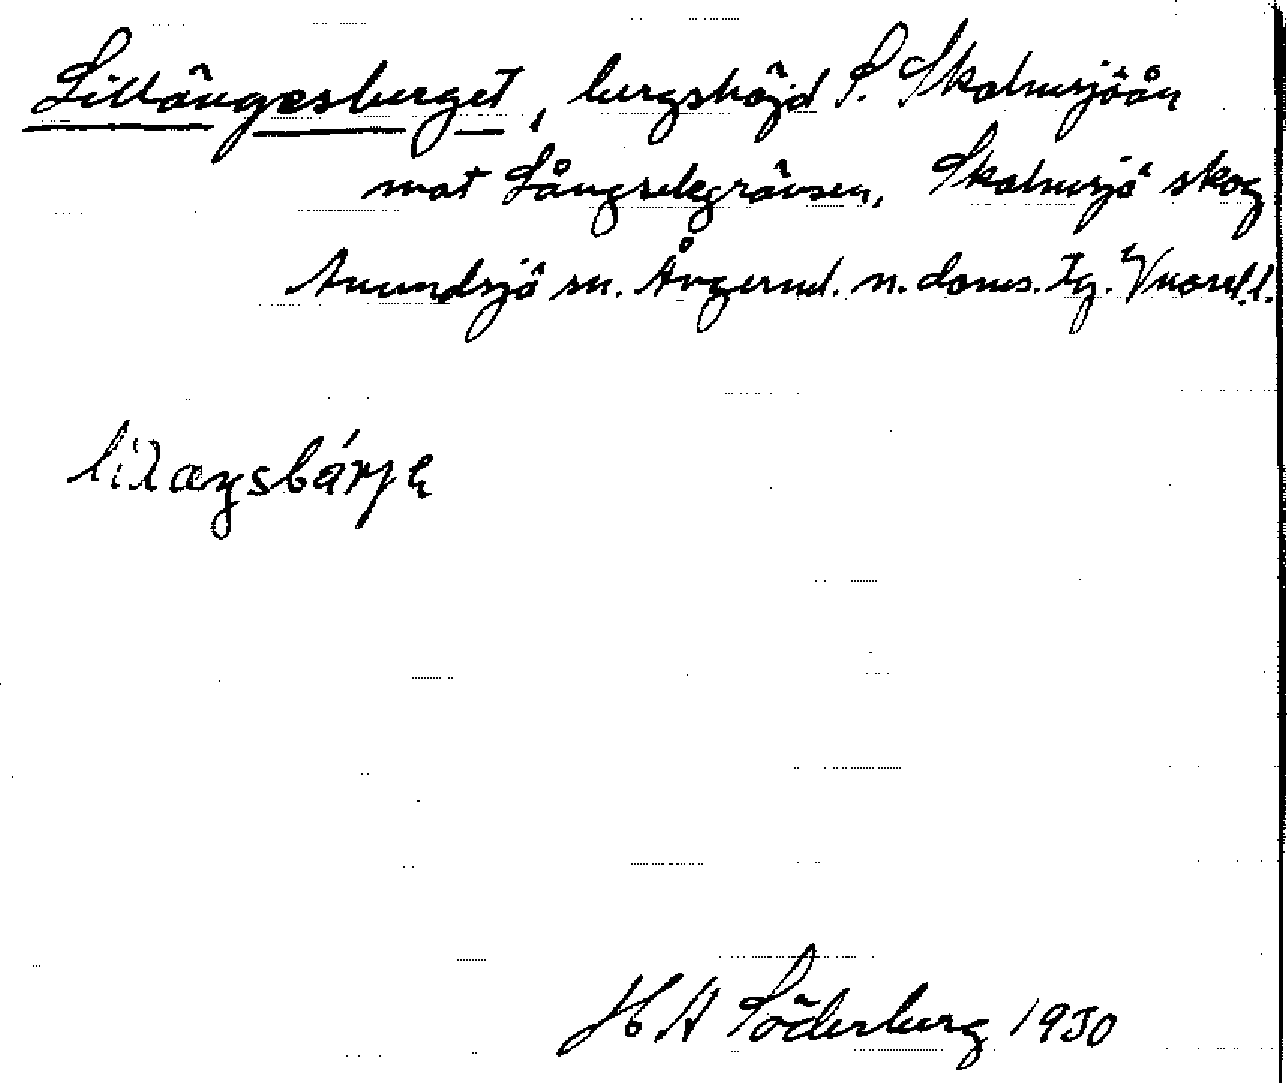 Lillängesberget, bergshöjd S. Skalmsjöån
mot Långselegränsen, Skalmsjö skog
Anundsjö sn. Ångerml. n. doms. tg. Västernorrl. l.
lilaŋsbárjɐ
H A Söderberg 1930